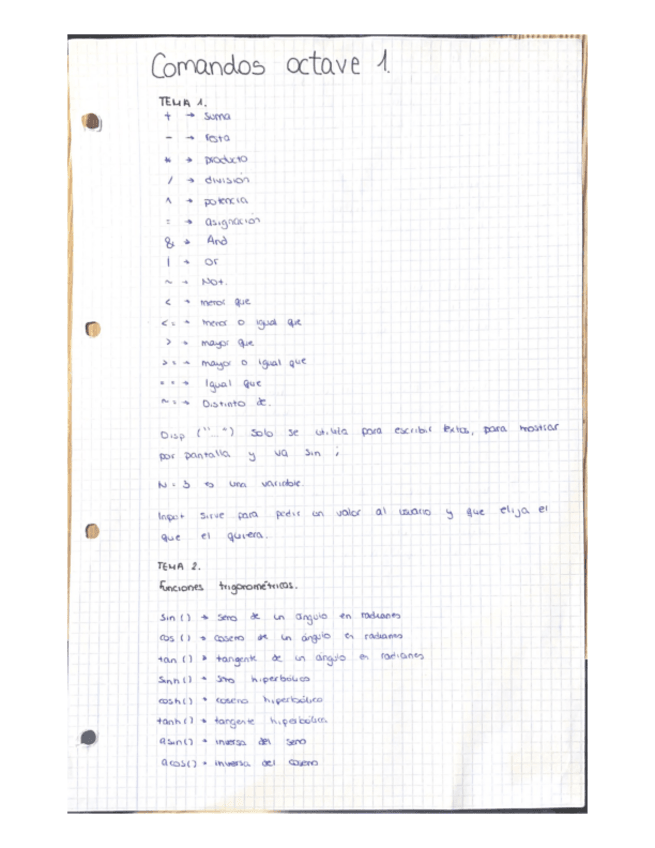 Comandos octave 1.
TEMA 1.
+ → Suma
- → resta
* → producto
/ → división
^ → potencia
= → asignación
& → And
| → Or
~ → Not.
< → menor que
<= → menor o igual que
> → mayor que
>= → mayor o igual que
== → Igual que
~= → Distinto de.
Disp ("...") Solo se utiliza para escribir textos, para mostrar
por pantalla y va sin ;
N = 3 es una variable.
Input sirve para pedir un valor al usuario y que elija el
que el quiera.
TEMA 2.
Funciones trigonométricas.
Sin () → Seno de un ángulo en radianes
cos () → coseno de un ángulo en radianes
tan () → tangente de un ángulo en radianes
Sinh () → Seno hiperbólico
cosh() → coseno hiperbólico
tanh () → tangente hiperbólica
asin() → inversa del seno
acos() → inversa del coseno